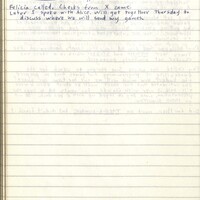 Felicia called. Checks from X same
Later I spoke with Alice. Will get together Thursday to
discuss where we will send my